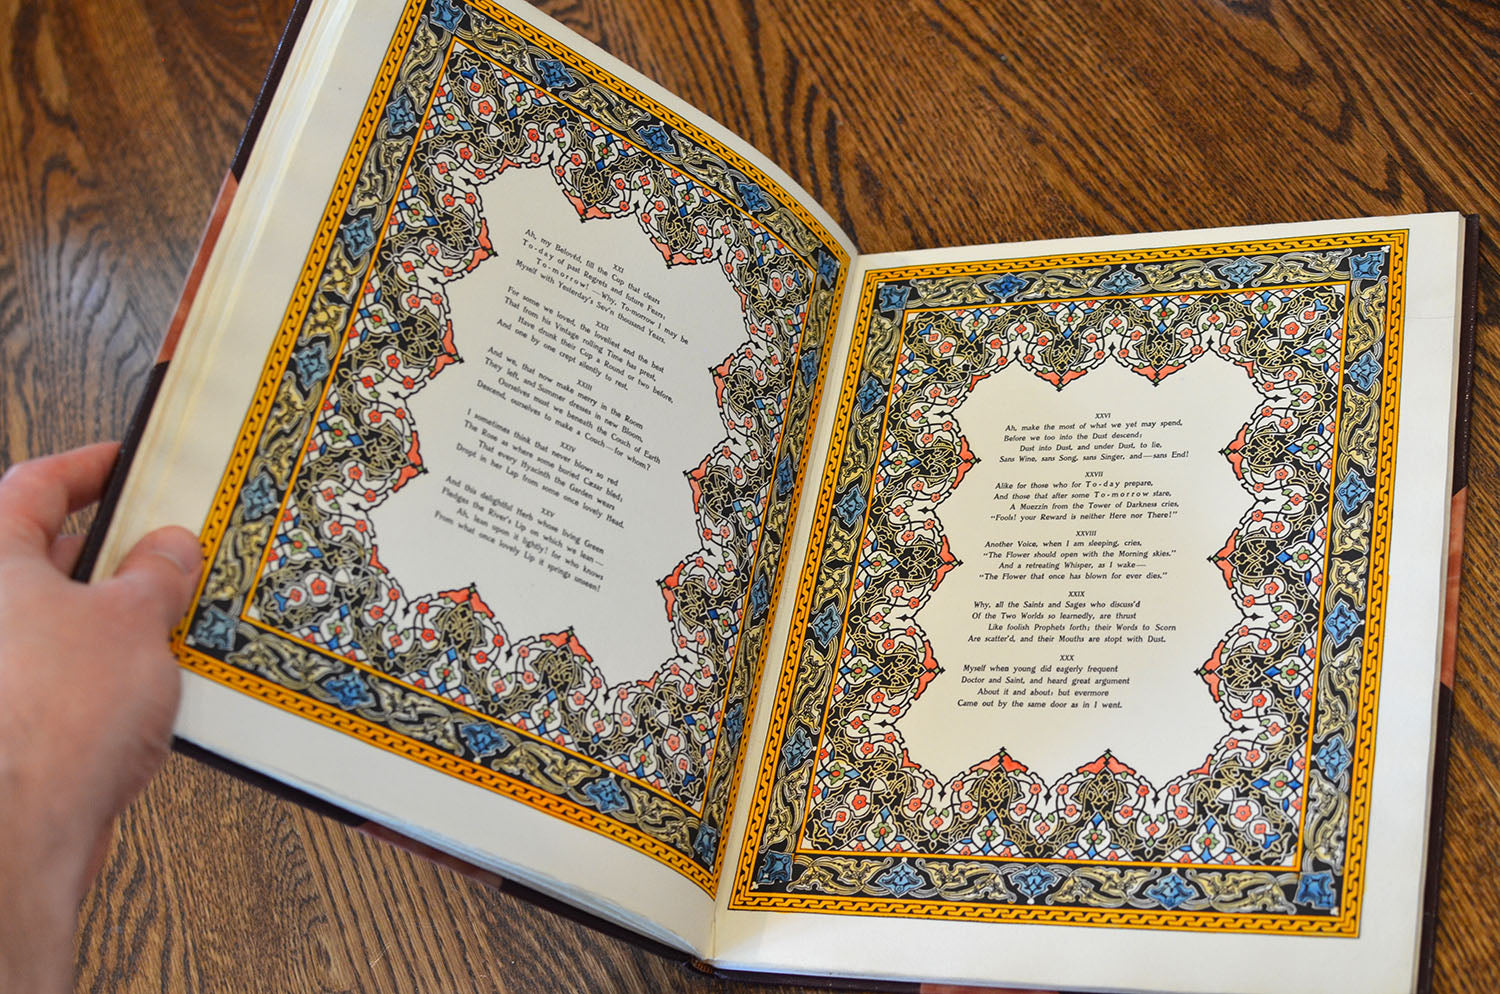 XXI
Ah, my Belovéd, fill the Cup that clears
To-day of past Regrets and future Fears:
To-morrow!—Why, To-morrow I may be
Myself with Yesterday's Sev'n thousand Years.
XXII
For some we loved, the loveliest and the best
That from his Vintage rolling Time has prest,
Have drunk their Cup a Round or two before,
And one by one crept silently to rest.
XXIII
And we, that now make merry in the Room
They left, and Summer dresses in new Bloom,
Ourselves must we beneath the Couch of Earth
Descend, ourselves to make a Couch—for whom?
XXIV
I sometimes think that never blows so red
The Rose as where some buried Cæsar bled;
That every Hyacinth the Garden wears
Dropt in her Lap from some once lovely Head.
XXV
And this delightful Herb whose living Green
Fledges the River's Lip on which we lean—
Ah, lean upon it lightly! for who knows
From what once lovely Lip it springs unseen!
XXVI
Ah, make the most of what we yet may spend,
Before we too into the Dust descend;
Dust into Dust, and under Dust, to lie,
Sans Wine, sans Song, sans Singer, and—sans End!
XXVII
Alike for those who for To-day prepare,
And those that after some To-morrow stare,
A Muezzin from the Tower of Darkness cries,
"Fools! your Reward is neither Here nor There!"
XXVIII
Another Voice, when I am sleeping, cries,
"The Flower should open with the Morning skies."
And a retreating Whisper, as I wake—
"The Flower that once has blown for ever dies."
XXIX
Why, all the Saints and Sages who discuss'd
Of the Two Worlds so learnedly, are thrust
Like foolish Prophets forth; their Words to Scorn
Are scatter'd, and their Mouths are stopt with Dust.
XXX
Myself when young did eagerly frequent
Doctor and Saint, and heard great argument
About it and about: but evermore
Came out by the same door as in I went.